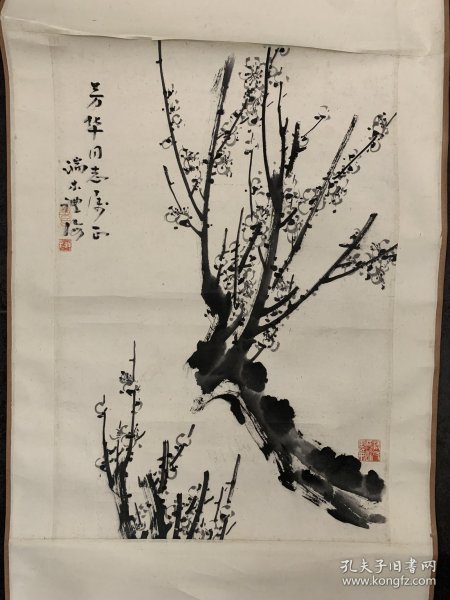 芳华同志属正
端木礼海
孔夫子旧书网
www.kongfz.com